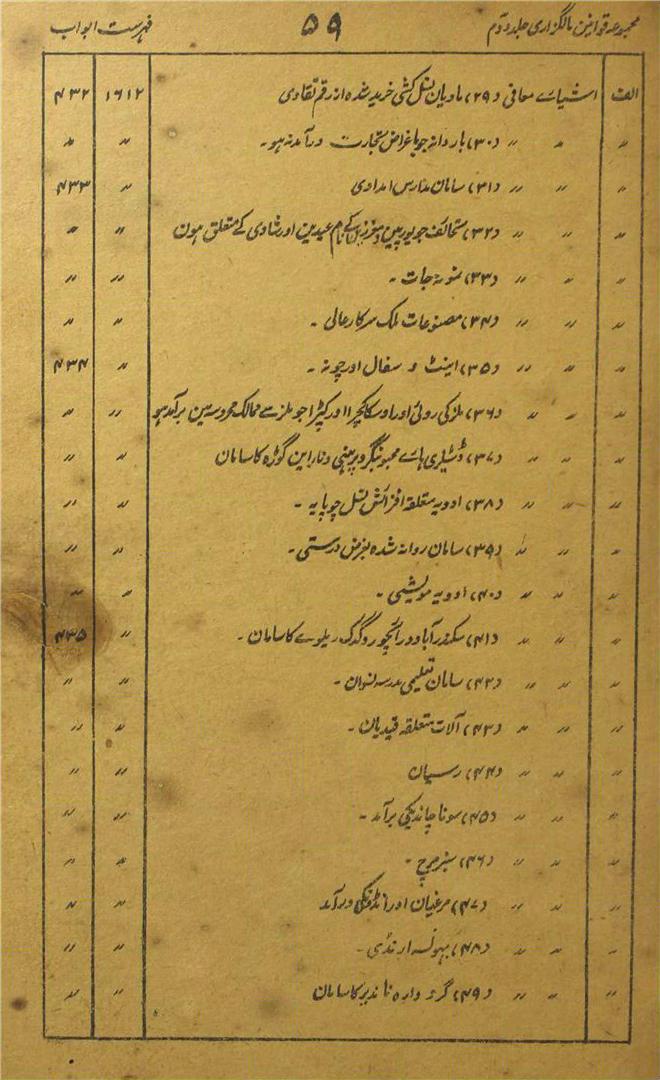 مجموعہ قوانین مالگزاری جلد دوم ۵۹ فہرست ابواب
الف اشیائے معافی (۲۹) مادیان نسل کشی خرید شدہ از رقم تقاوی ۱۶۱۲ ۴۳۲
〃 〃 〃 (۳۰) باردانہ جو باغراض تجارت درآمد نہ ہو۔ 〃 〃
〃 〃 〃 (۳۱) سامان مدارس امدادی 〃 ۴۳۳
〃 〃 〃 (۳۲) تحائف جو یورپین و معززین کے نام عیدین اور شادی کے متعلق ہون 〃 〃
〃 〃 〃 (۳۳) نمونہ جات۔ 〃 〃
〃 〃 〃 (۳۴) مصنوعات ملک سرکار عالی۔ 〃 〃
〃 〃 〃 (۳۵) اینٹ و سفال اور چونہ۔ 〃 ۴۳۴
〃 〃 〃 (۳۶) ملز کی روئی اور اوسکا کچرا اور کپڑا جو ملز سے ممالک محروسہ مین برآمد ہو 〃 〃
〃 〃 〃 (۳۷) ڈسٹلری ہائے محبوبنگر و پربہنی و ناراین گوڑہ کا سامان 〃 〃
〃 〃 〃 (۳۸) ادویہ متعلقہ افزائش نسل چوپایہ۔ 〃 〃
〃 〃 〃 (۳۹) سامان روانہ شدہ بغرض درستی۔ 〃 〃
〃 〃 〃 (۴۰) ادویہ مویشی۔ 〃 〃
〃 〃 〃 (۴۱) سکندرآباد و رائچور و گدگ ریلوے کا سامان۔ 〃 ۴۳۵
〃 〃 〃 (۴۲) سامان تعلیمی مدرسہ نسوان۔ 〃 〃
〃 〃 〃 (۴۳) آلات متعلقہ قیدیان۔ 〃 〃
〃 〃 〃 (۴۴) رسیان 〃 〃
〃 〃 〃 (۴۵) سونا چاندیکی برآمد۔ 〃 〃
〃 〃 〃 (۴۶) سبز مرچ۔ 〃 〃
〃 〃 〃 (۴۷) مرغیان اور انڈونکی درآمد 〃 〃
〃 〃 〃 (۴۸) بہوسہ ارنڈی۔ 〃 〃
〃 〃 〃 (۴۹) گردوارہ ناندیڑ کا سامان 〃 〃